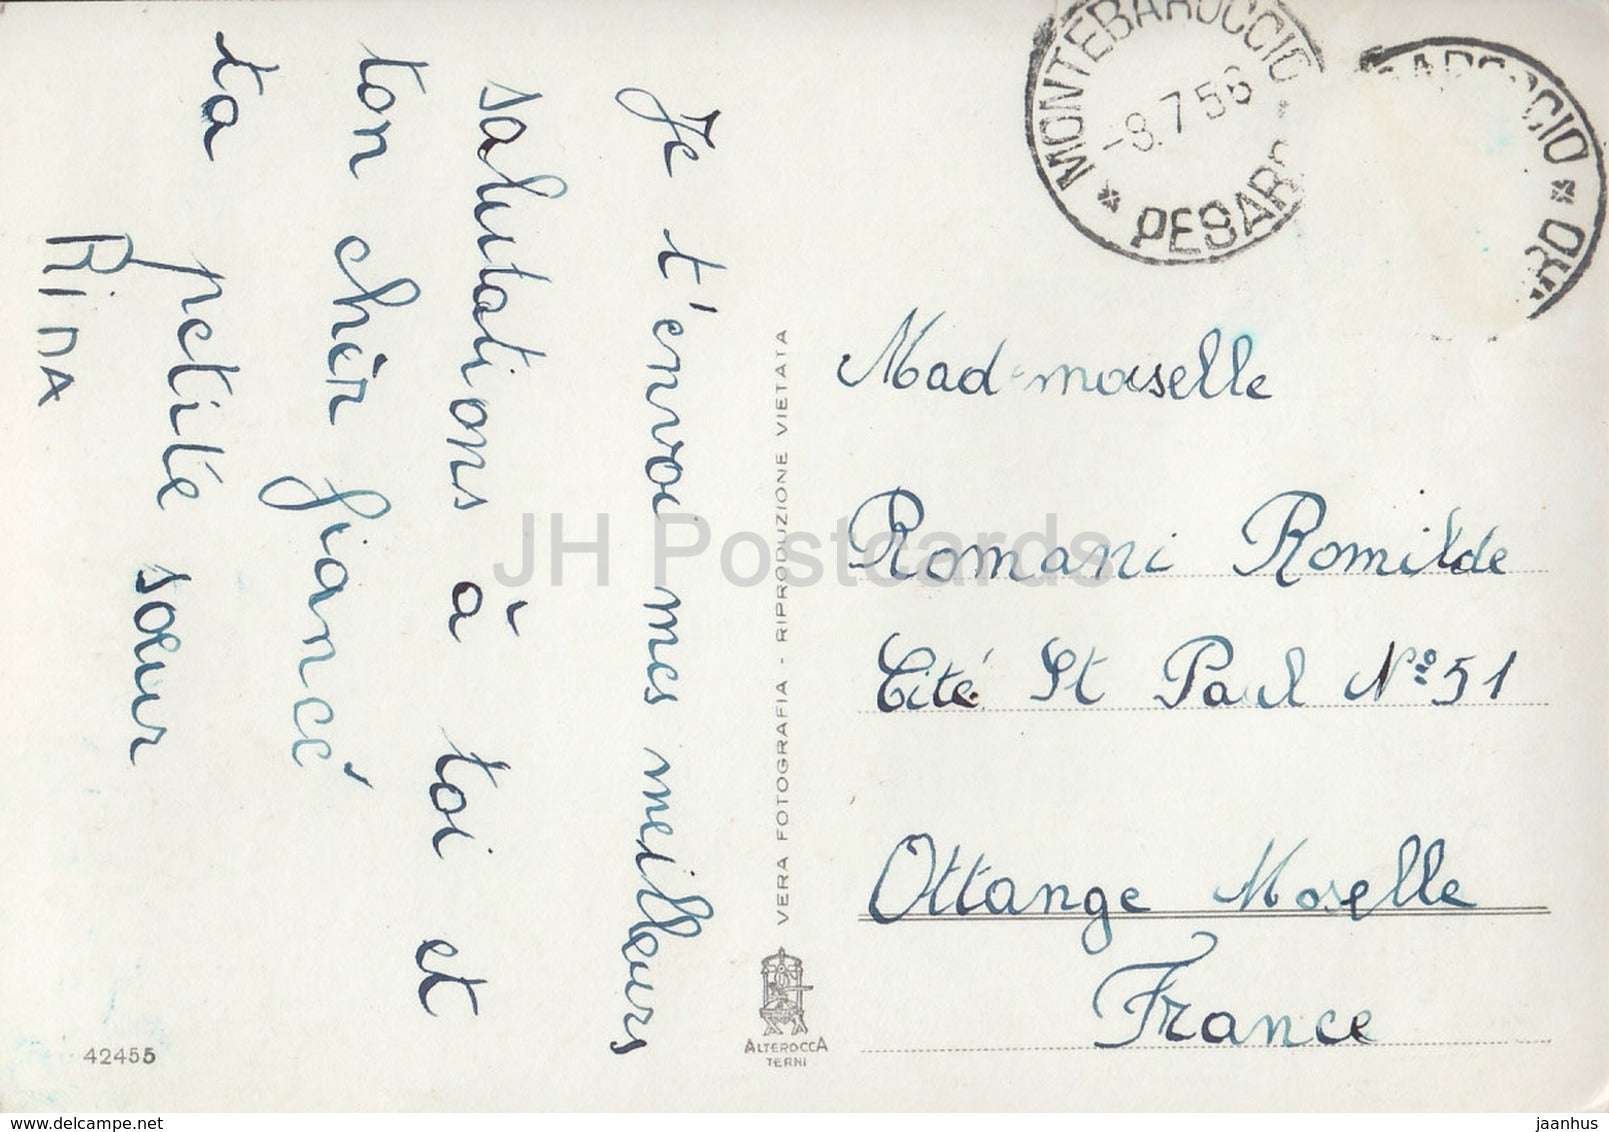 Je t'envoi mes meilleurs
salutations à toi et
ton chèr fiancé
ta petite sœur
Rina
VERA FOTOGRAFIA - RIPRODUZIONE VIETATA
ALTEROCCA
TERNI
42455
MONTEBAROCCIO
-8.7.56
PESARO
Mad-moiselle
Romani Romilde
Cité St Paul Nº 51
Ottange Moselle
France
JH Postcards
www.delcampe.net
jaanhus